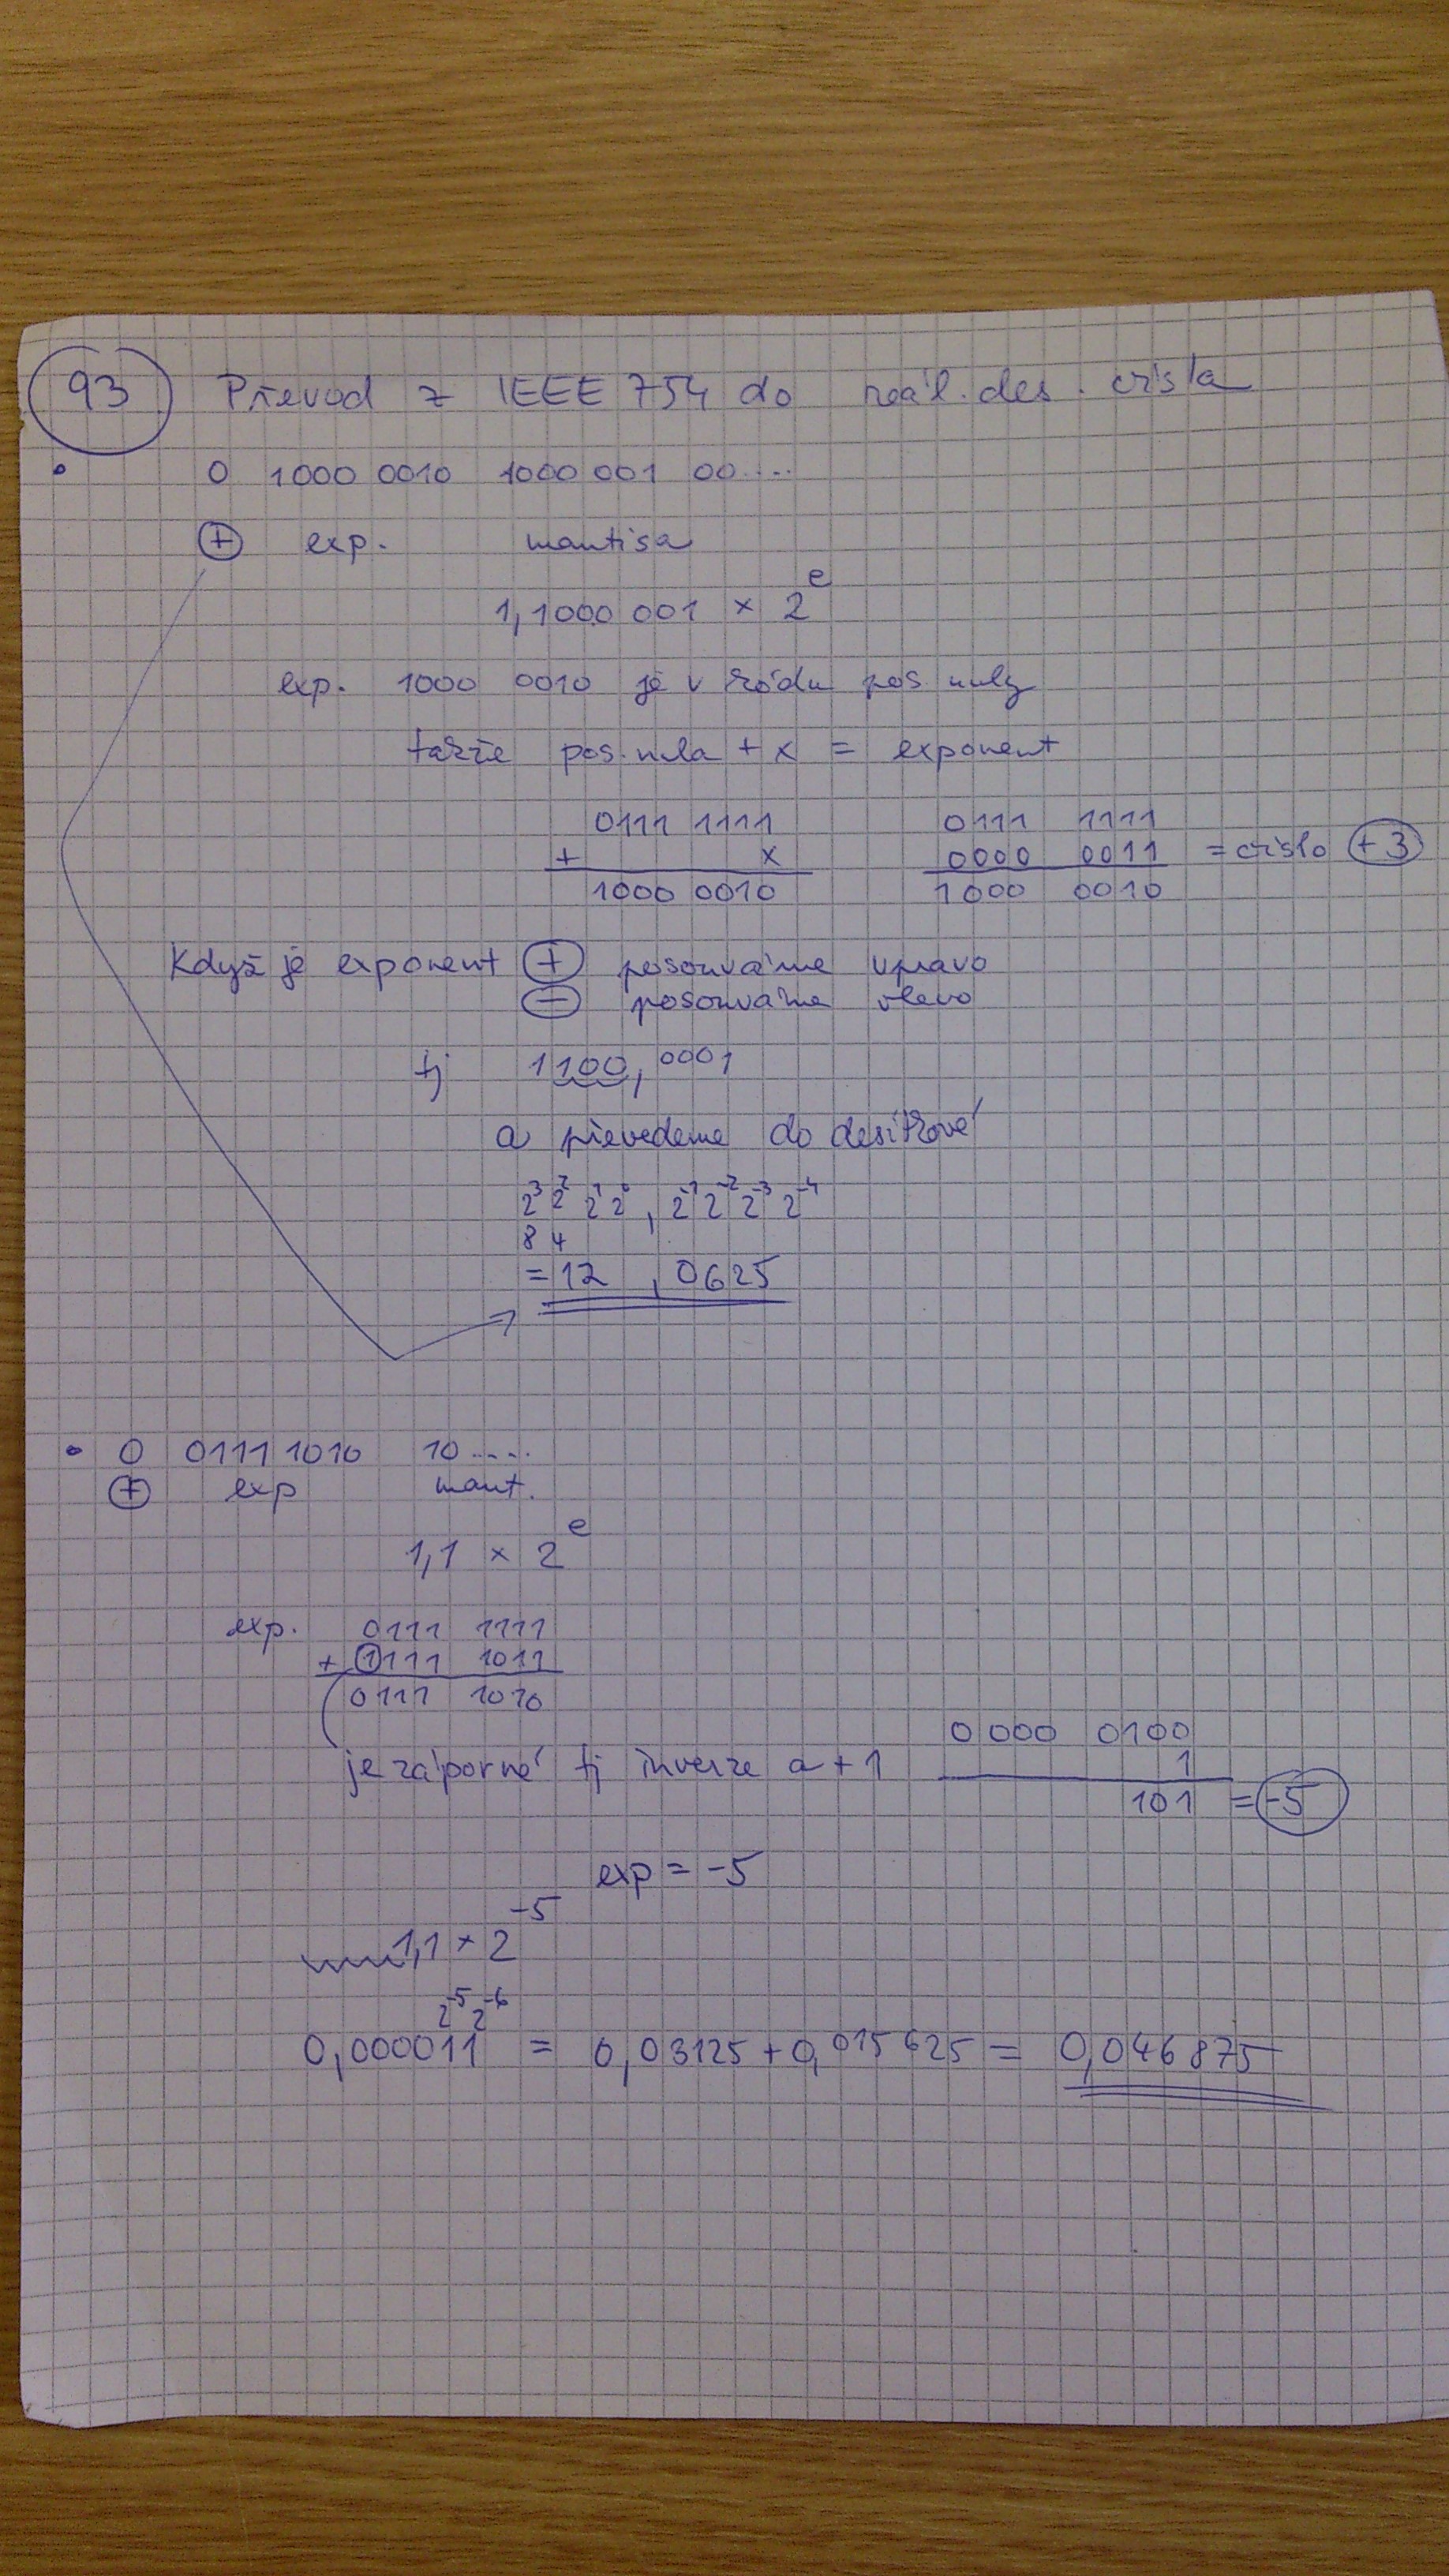 93 Převod z IEEE 754 do reál. des. čísla
• 0 1000 0010 1000 001 00....
+ exp. mantisa
1,1000 001 × 2^e
exp. 1000 0010 je v kódu pos. nuly
takže pos. nula + x = exponent
0111 1111 0111 1111
+ x 0000 0011 = číslo +3
1000 0010 1000 0010
Když je exponent + posouváme vpravo
- posouváme vlevo
tj 1100,0001
a převedeme do desítkové
2^3 2^2 2^1 2^0 , 2^-1 2^-2 2^-3 2^-4
8 4
= 12 , 0625
• 0 0111 1010 10.....
+ exp mant.
1,1 × 2^e
exp. 0111 1111
+ 1111 1011
0111 1010
0000 0100
je záporné tj inverze a + 1 1
101 = -5
exp = -5
1,1 × 2^-5
2^-5 2^-6
0,000011 = 0,03125 + 0,015625 = 0,046875